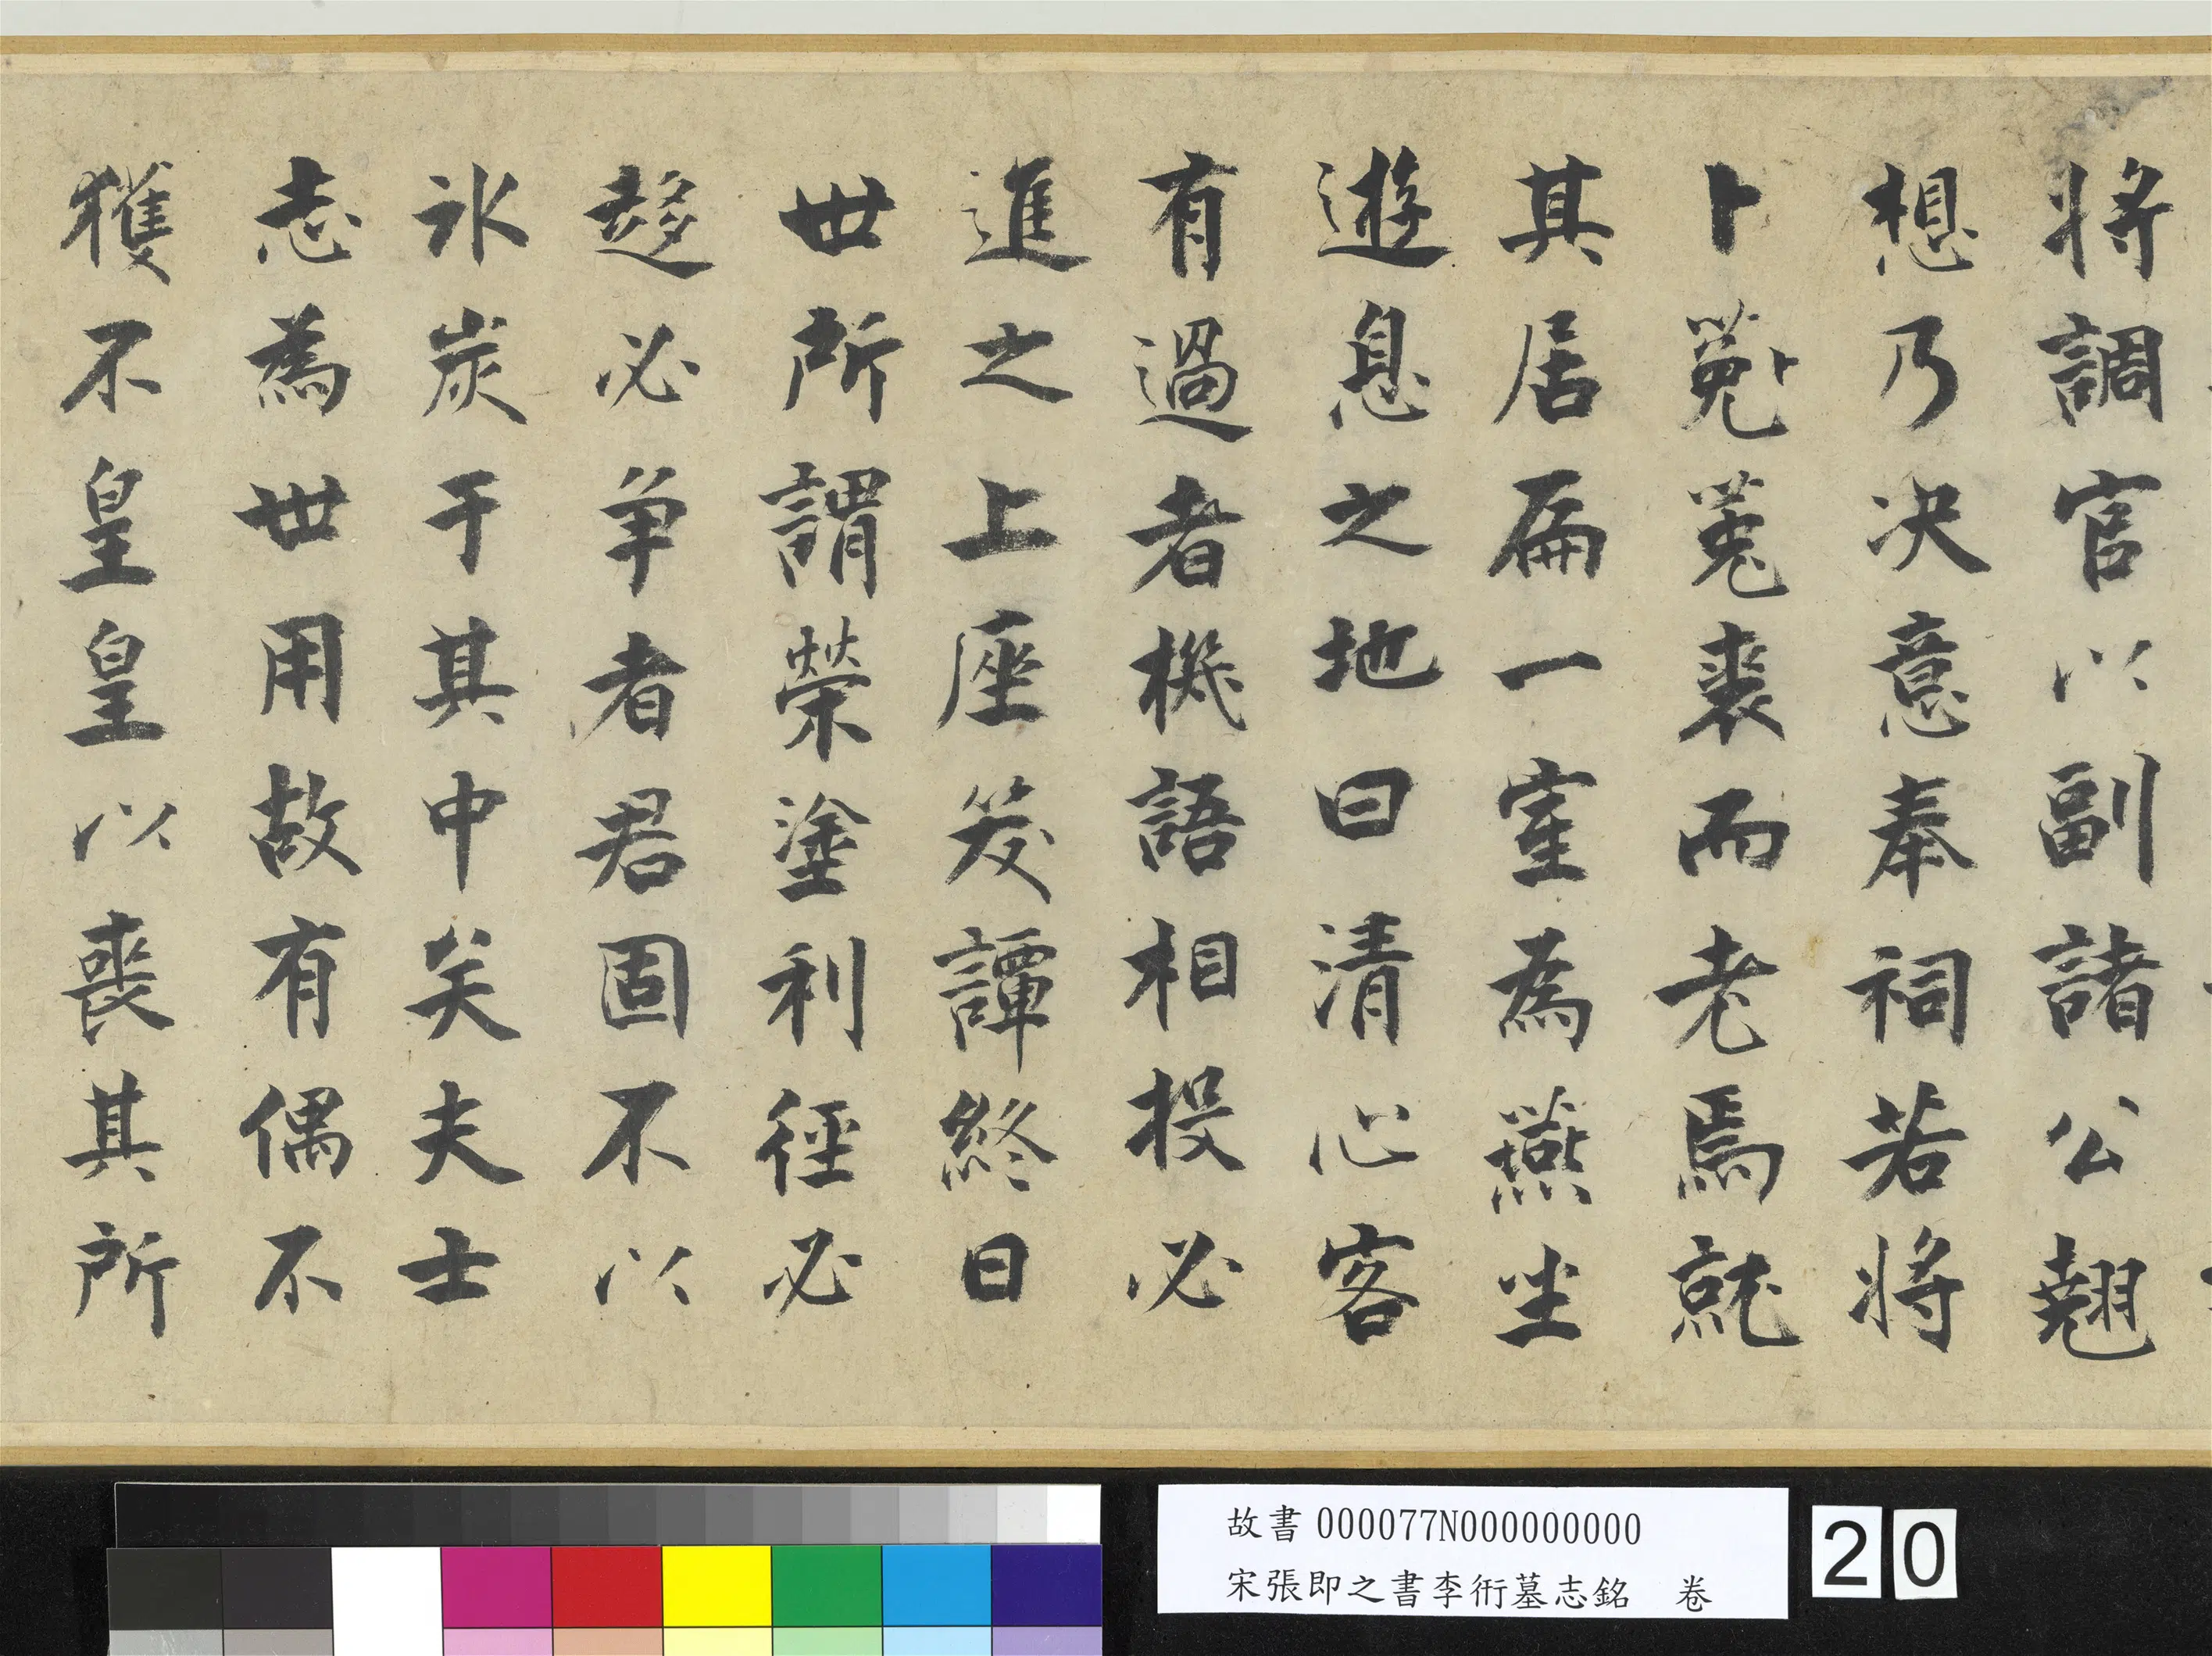 將調官以副諸公翹
想乃决意奉祠若將
卜菟菟裘而老焉就
其居扁一室為燕坐
遊息之地曰清心客
有過者機語相投必
進之上座笑譚終日
世所謂榮塗利徑必
趍必争者君固不以
氷炭于其中矣夫士
志為世用故有偶不
獲不皇皇以喪其所
故書000077N000000000
宋張即之書李衎墓志銘 卷
20